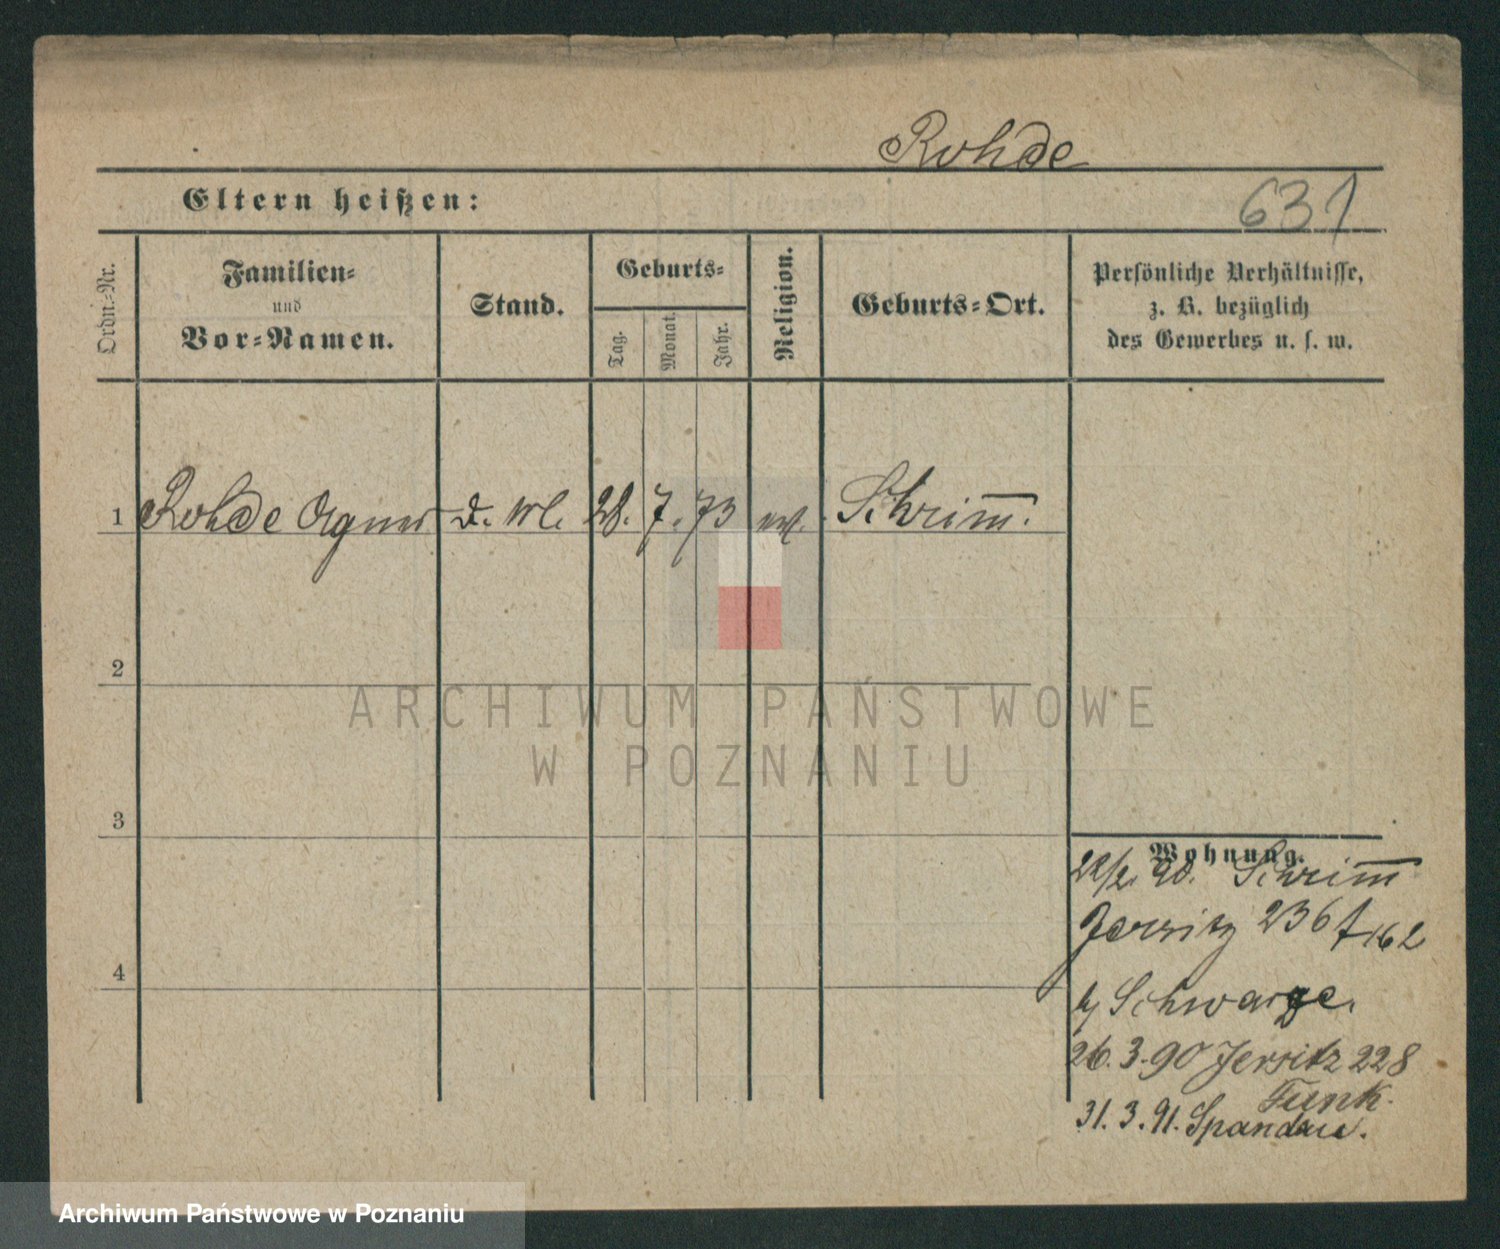 Rohde
Eltern heißen:
631
Ordn.-Nr.
Familien-
und
Vor-Namen.
Stand.
Geburts-
Tag.
Monat.
Jahr.
Religion.
Geburts-Ort.
Persönliche Verhältnisse,
z. B. bezüglich
des Gewerbes u. s. w.
1 Rohde Agnes d. wl. 28. 7. 73 ev. Schrim̅.
2
ARCHIWUM PAŃSTWOWE
W POZNANIU
3
Wohnung.
22/2. 90. Schrim̅
Jersitz 236 162
b/ Schwarze.
26. 3. 90 Jersitz 228
Funk.
31. 3. 91. Spandau.
4
Archiwum Państwowe w Poznaniu